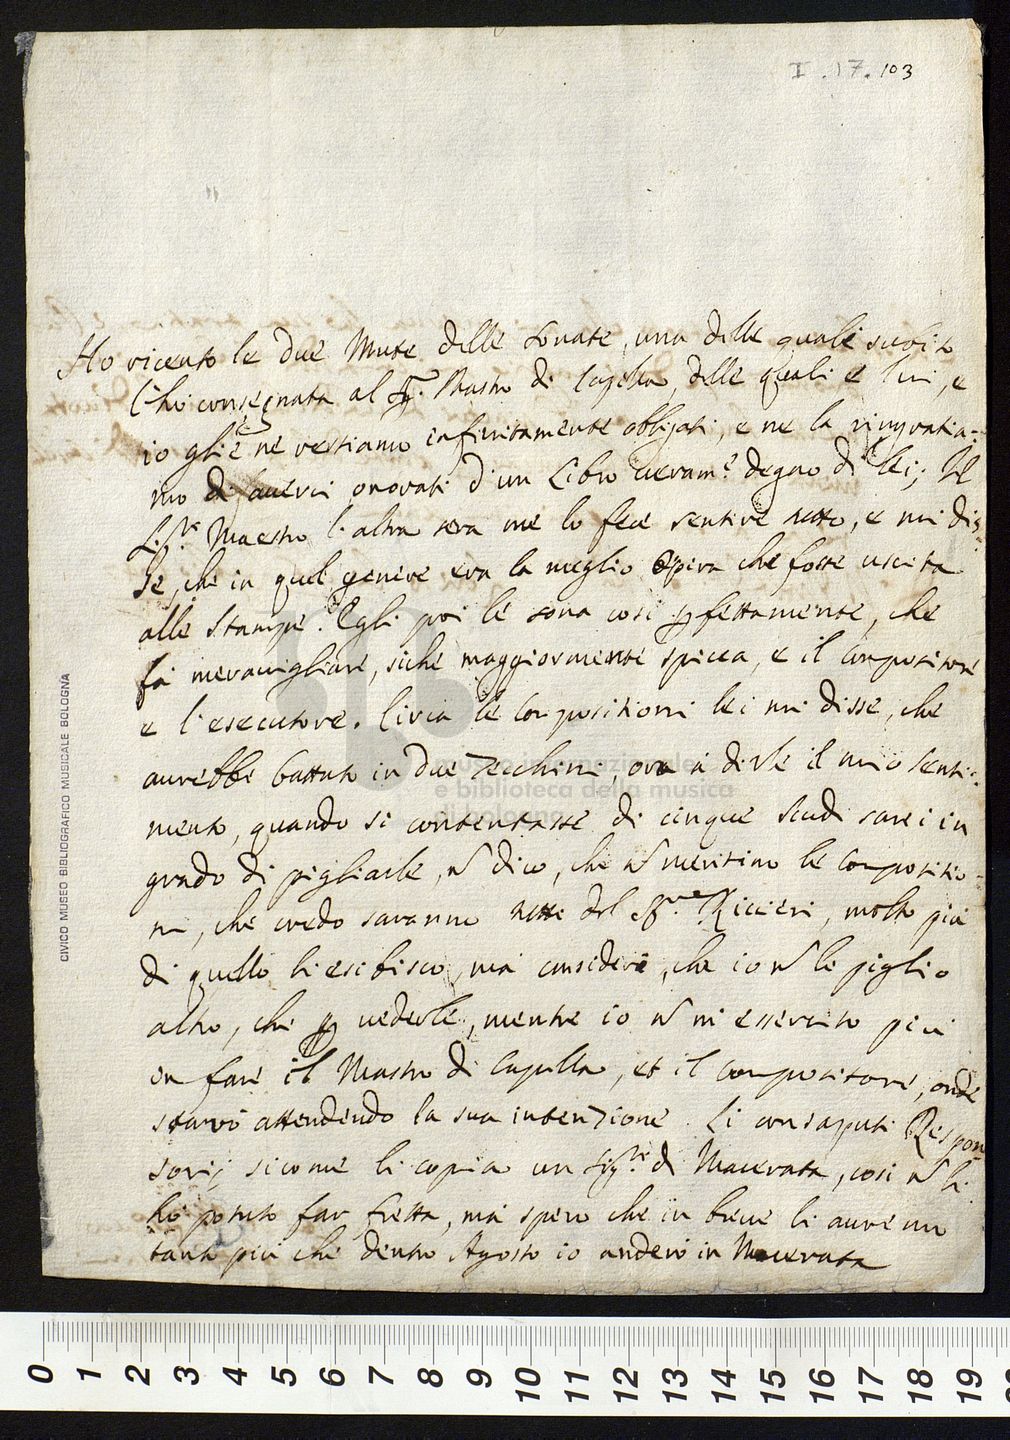 I.17.103
Ho riceuto le due Mute delle Sonate, una delle quali subito
l'hò consegnata al Sigr. Mastro di Capella, delle quali e lui, e
io gliè ne restiamo infinitamente obbligati, e ne la ringratia=
mo di averci onorati d'un Libro veramte. degno di lei; Il
Sigr. Maestro l'altra sera me lo fece sentire tutto, e mi dis=
se, che in quel genere era la meglio Opera che fosse uscita
alle Stampe. Egli poi le sona così perfettamente, che
fà meravigliare, siche maggiormente spicca, e il Compositore
e l'esecutore. Circa le Compositioni lei mi disse, che
aurebbe battuto in due Zecchini, ora à dirle il mio senti=
mento, quando si contentasse di cinque Scudi sarei in
grado di pigliarle, ñ dico, che ñ meritino le compositio=
ni, che credo saranno tutte del Sigre. Riccieri, molto più
di quello li esibisco, mà consideri, che io ñ le piglio
altro, che per vederle, mentre io ñ mi essercito più
in fare il Mastro di Capella, et il compositore, onde
starò attendendo la sua intenzione. Li consaputi Respon
sorij, sicome li copia un Sigre. di Macerata, così ñ li
hò potuto far fretta, mà spero che in breve li auremo
tanto più che dentro Agosto io anderò in Macerata
CIVICO MUSEO BIBLIOGRAFICO MUSICALE BOLOGNA
museo internazionale
e biblioteca della musica
di bologna
0 1 2 3 4 5 6 7 8 9 10 11 12 13 14 15 16 17 18 19